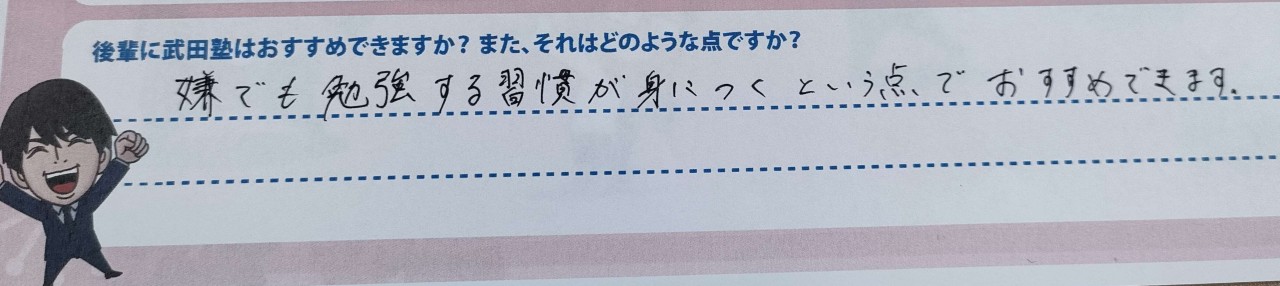 後輩に武田塾はおすすめできますか？また、それはどのような点ですか？
嫌でも勉強する習慣が身につくという点でおすすめできます。